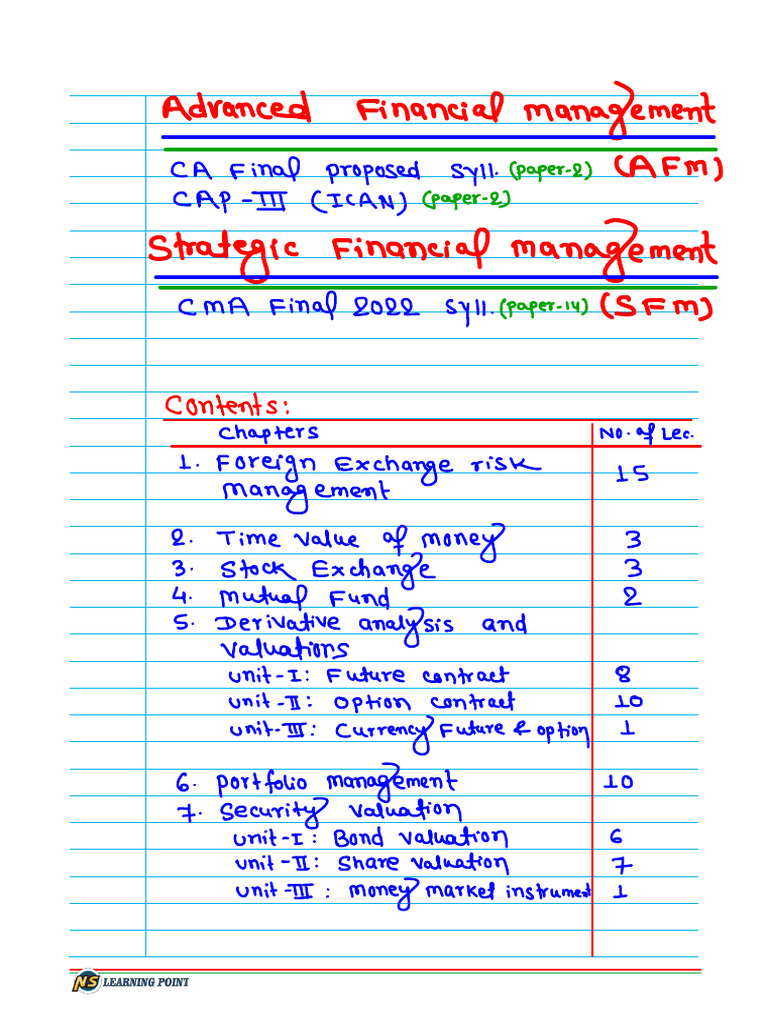 Advanced Financial management
CA Final proposed Syll. (paper-2) (AFm)
CAP-III (ICAN) (paper-2)
Strategic Financial management
CMA Final 2022 Syll. (paper-14) (SFm)
Contents:
Chapters No. of Lec.
1. Foreign Exchange risk
management 15
2. Time value of money 3
3. Stock Exchange 3
4. mutual Fund 2
5. Derivative analysis and
valuations
unit-I: Future contract 8
unit-II: option contract 10
unit-III: Currency Future & option 1
6. portfolio management 10
7. Security valuation
unit-I: Bond valuation 6
unit-II: Share valuation 7
unit-III: money market instrument 1
NS LEARNING POINT